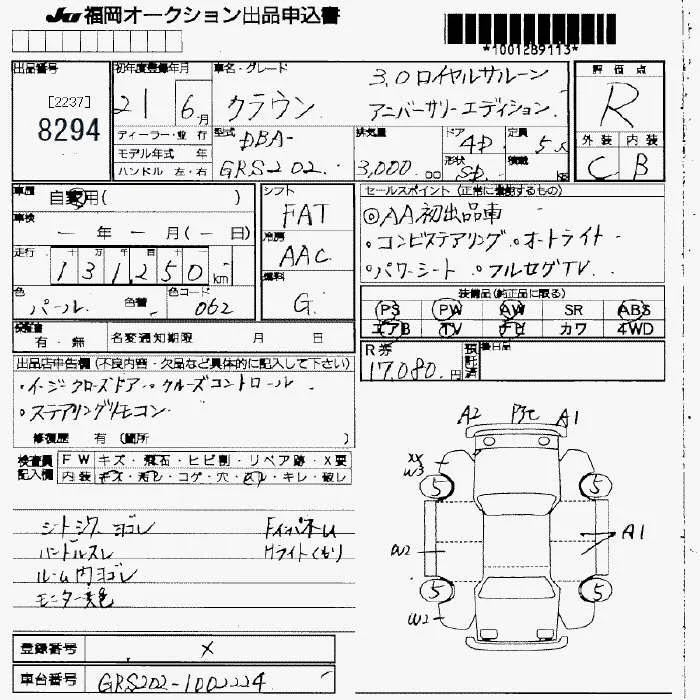 JU 福岡オークション出品申込書
*1001289113*
出品番号
[2237]
8294
初年度登録年月
21 6月
ディーラー・並行
モデル年式 年
ハンドル 左・右
車名・グレード
3.0 ロイヤルサルーン
クラウン アニバーサリーエディション
型式
DBA-
GRS202
排気量
3,000 cc
ドア
4D
形状
SD
定員
5人
積載
kg
評価点
R
外装 内装
C B
車歴 自家用( )
車検 ー年ー月(ー日)
走行 131,250 km
色 パール 色替 色コード 062
シフト
FAT
冷房
AAC
燃料
G
セールスポイント (正常に機能するもの)
◎AA初出品車
・コンビステアリング ・オートライト
・パワーシート ・フルセグTV
装備品(純正品に限る)
PS PW AW SR ABS
エアB TV ナビ カワ 4WD
保証書 有・無 名変通知期限 月 日
R券
17,080.円
預託済
後日品
出品店申告欄 (不良内容・欠品など具体的に記入して下さい)
・イージークローズドア ・クルーズコントロール
・ステアリングリモコン
修復歴 有 (箇所 )
検査員記入欄
FW キズ・飛石・ヒビ割・リペア跡・X要
内装 キズ・汚レ・コゲ・穴・スレ・キレ・破レ
シートシワ ヨゴレ
ハンドルスレ
ルーム内ヨゴレ
モニター変色
Fインパネイタミ
Hライトくもり
A2 A1
XX
W3
5 5
A1
5 5
W2
登録番号 X
車台番号 GRS202-1002224